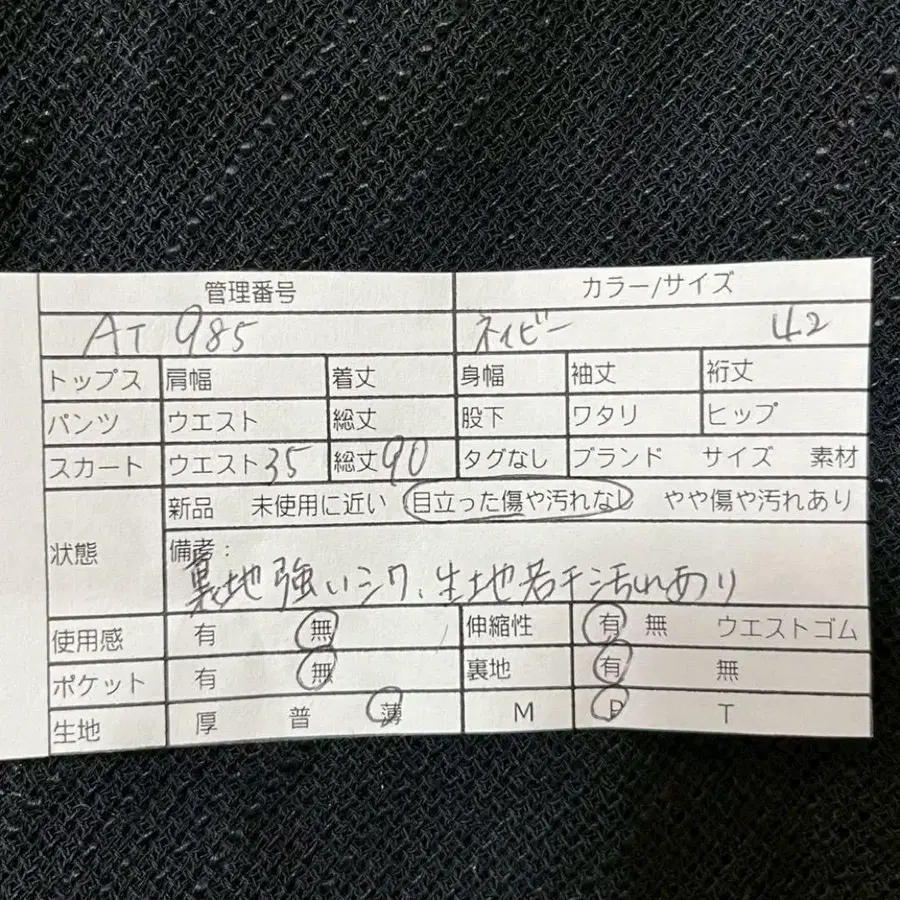 管理番号 カラー/サイズ
AT 985 ネイビー 42
トップス 肩幅 着丈 身幅 袖丈 裄丈
パンツ ウエスト 総丈 股下 ワタリ ヒップ
スカート ウエスト 35 総丈 90 タグなし ブランド サイズ 素材
状態 新品 未使用に近い 目立った傷や汚れなし やや傷や汚れあり
備考:
裏地強いシワ、生地若干汚れあり
使用感 有 無 伸縮性 有 無 ウエストゴム
ポケット 有 無 裏地 有 無
生地 厚 普 薄 M P T